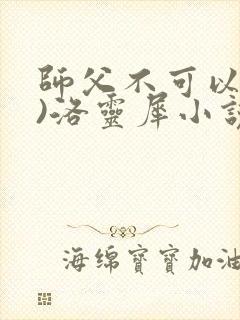 師父不可以
)洛靈犀小說
海绵寶寶加油